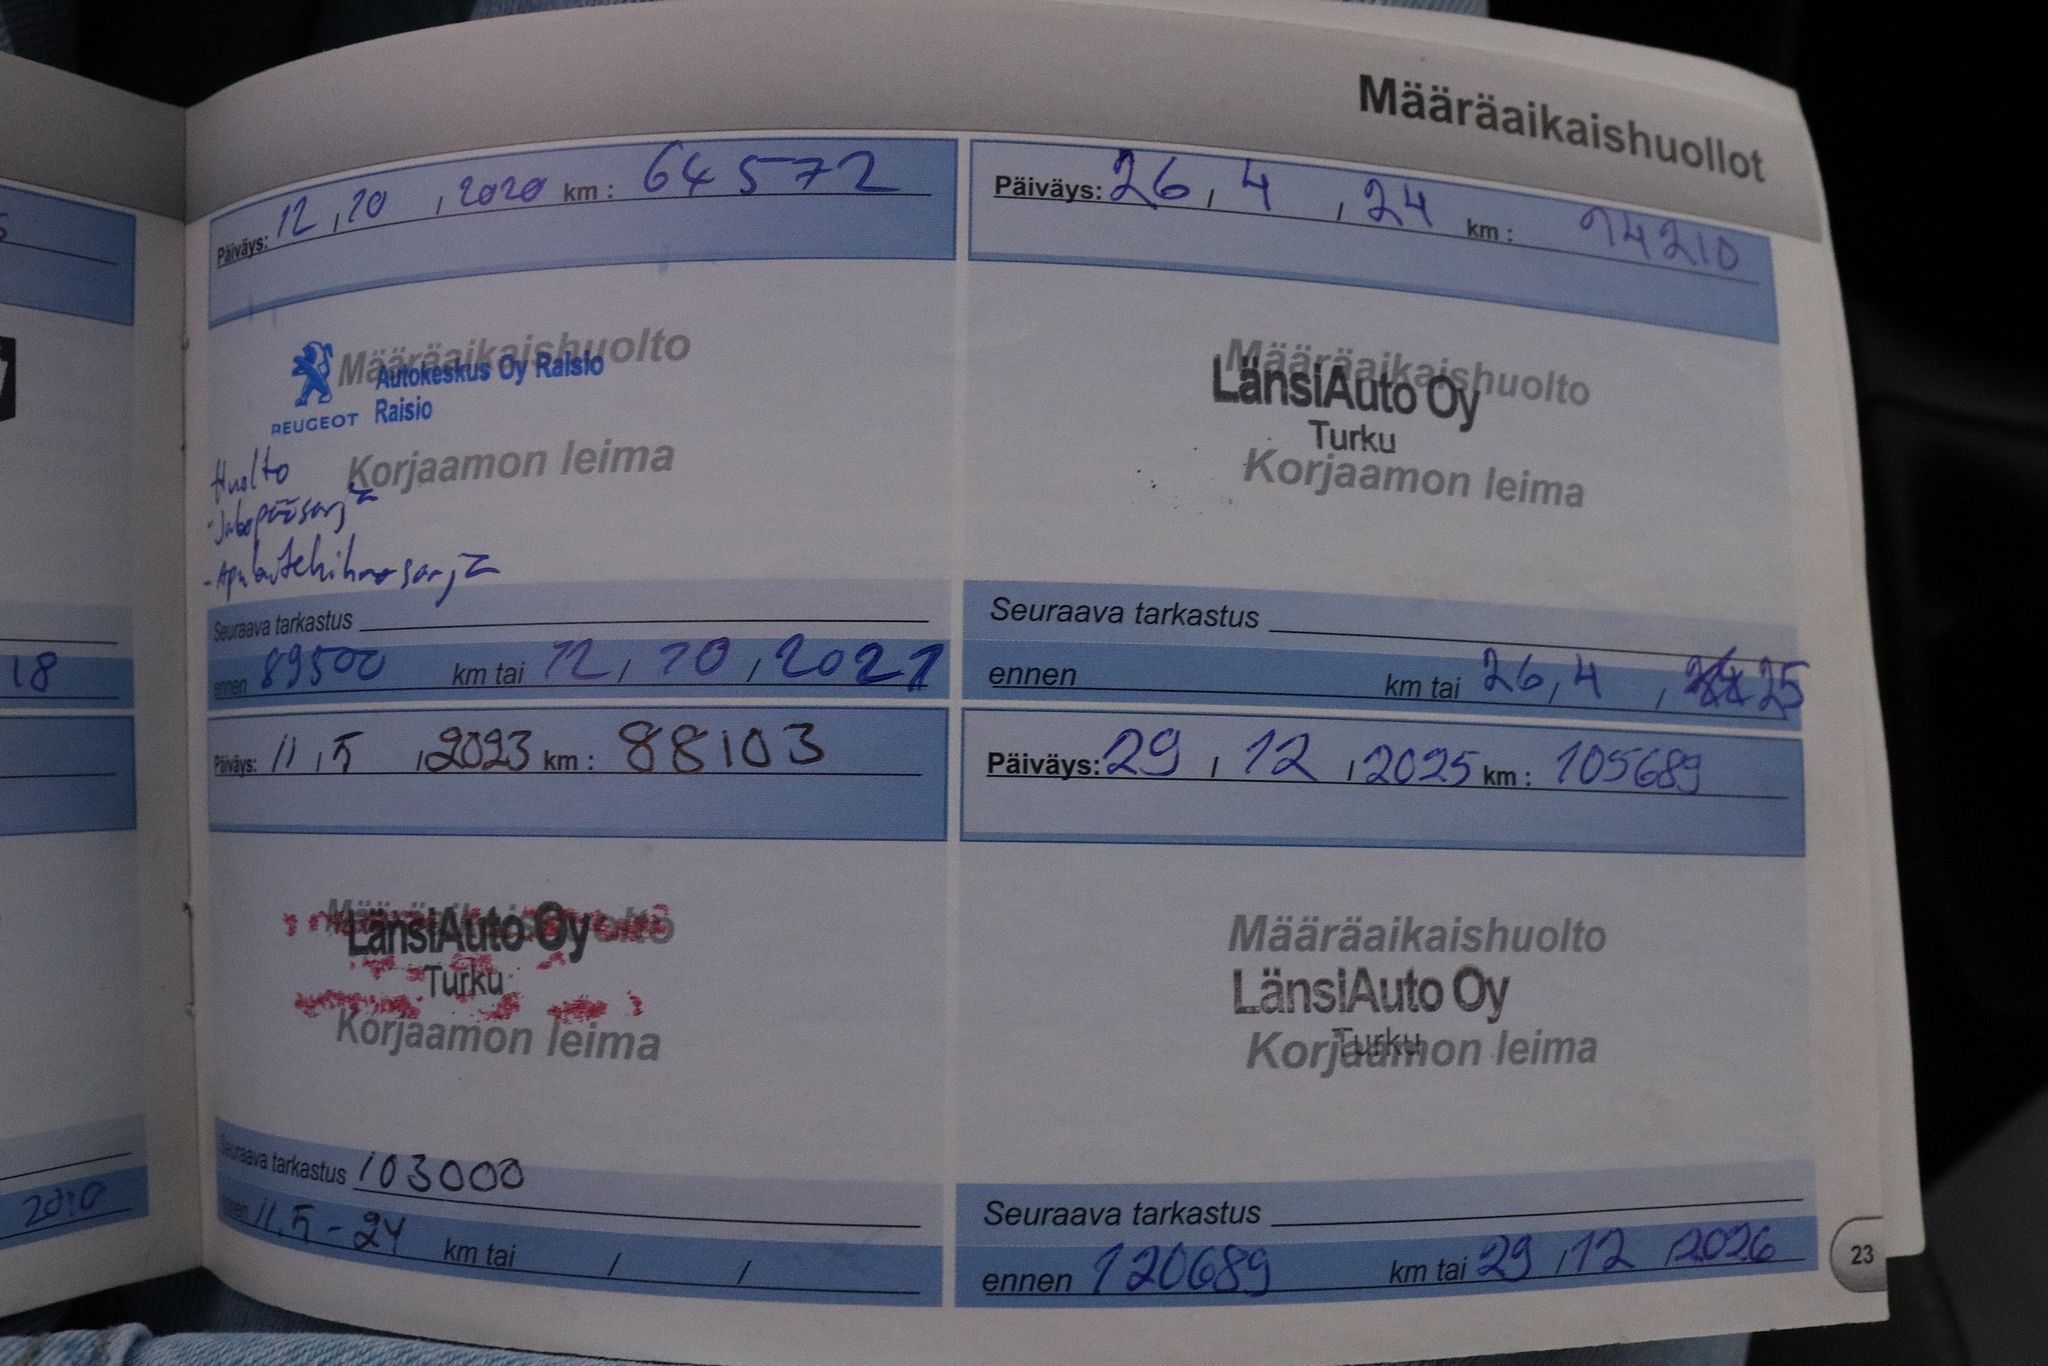 Määräaikaishuollot
Päiväys: 12, 10, 2020 km: 64572
Määräaikaishuolto
Autokeskus Oy Raisio
PEUGEOT Raisio
Korjaamon leima
Huolto
- Jakopääsarja
- Apulaitehihnasarja
Seuraava tarkastus
ennen 89500 km tai 12, 10, 2021
Päiväys: 11, 5, 2023 km: 88103
Määräaikaishuolto
LänsiAuto Oy
Turku
Korjaamon leima
Seuraava tarkastus 103000
ennen 11.5-24 km tai / /
Päiväys: 26, 4, 24 km: 94210
Määräaikaishuolto
LänsiAuto Oy
Turku
Korjaamon leima
Seuraava tarkastus
ennen km tai 26, 4, 25
Päiväys: 29, 12, 2025 km: 105689
Määräaikaishuolto
LänsiAuto Oy
Turku
Korjaamon leima
Seuraava tarkastus
ennen 120689 km tai 29, 12, 2026
23
18